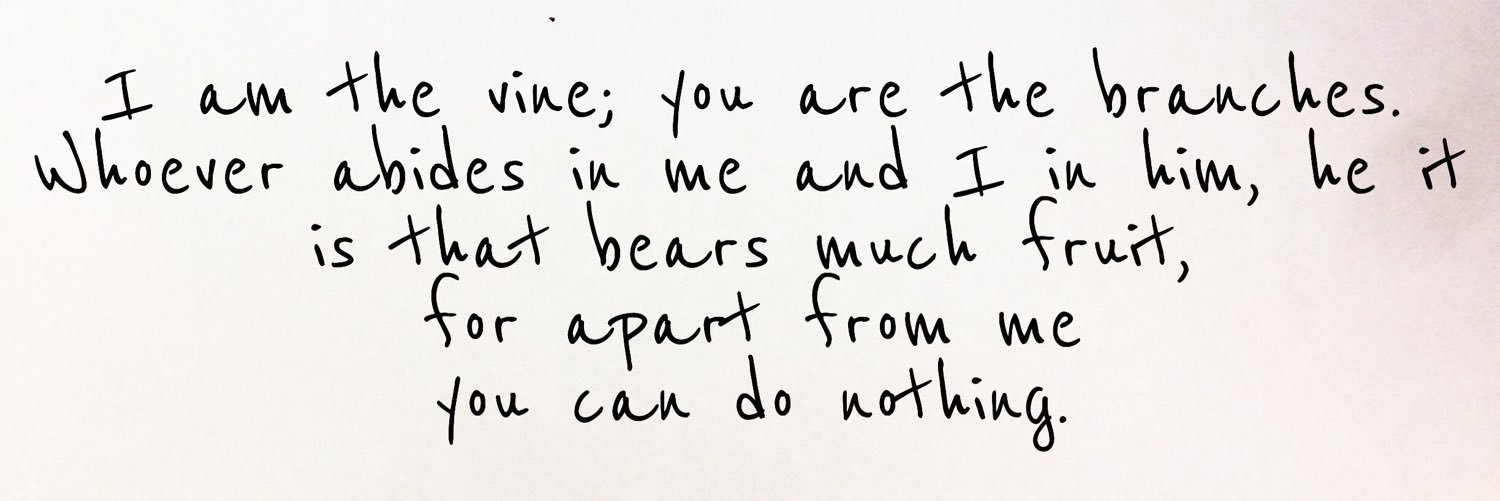 I am the vine; you are the branches.
Whoever abides in me and I in him, he it
is that bears much fruit,
for apart from me
you can do nothing.